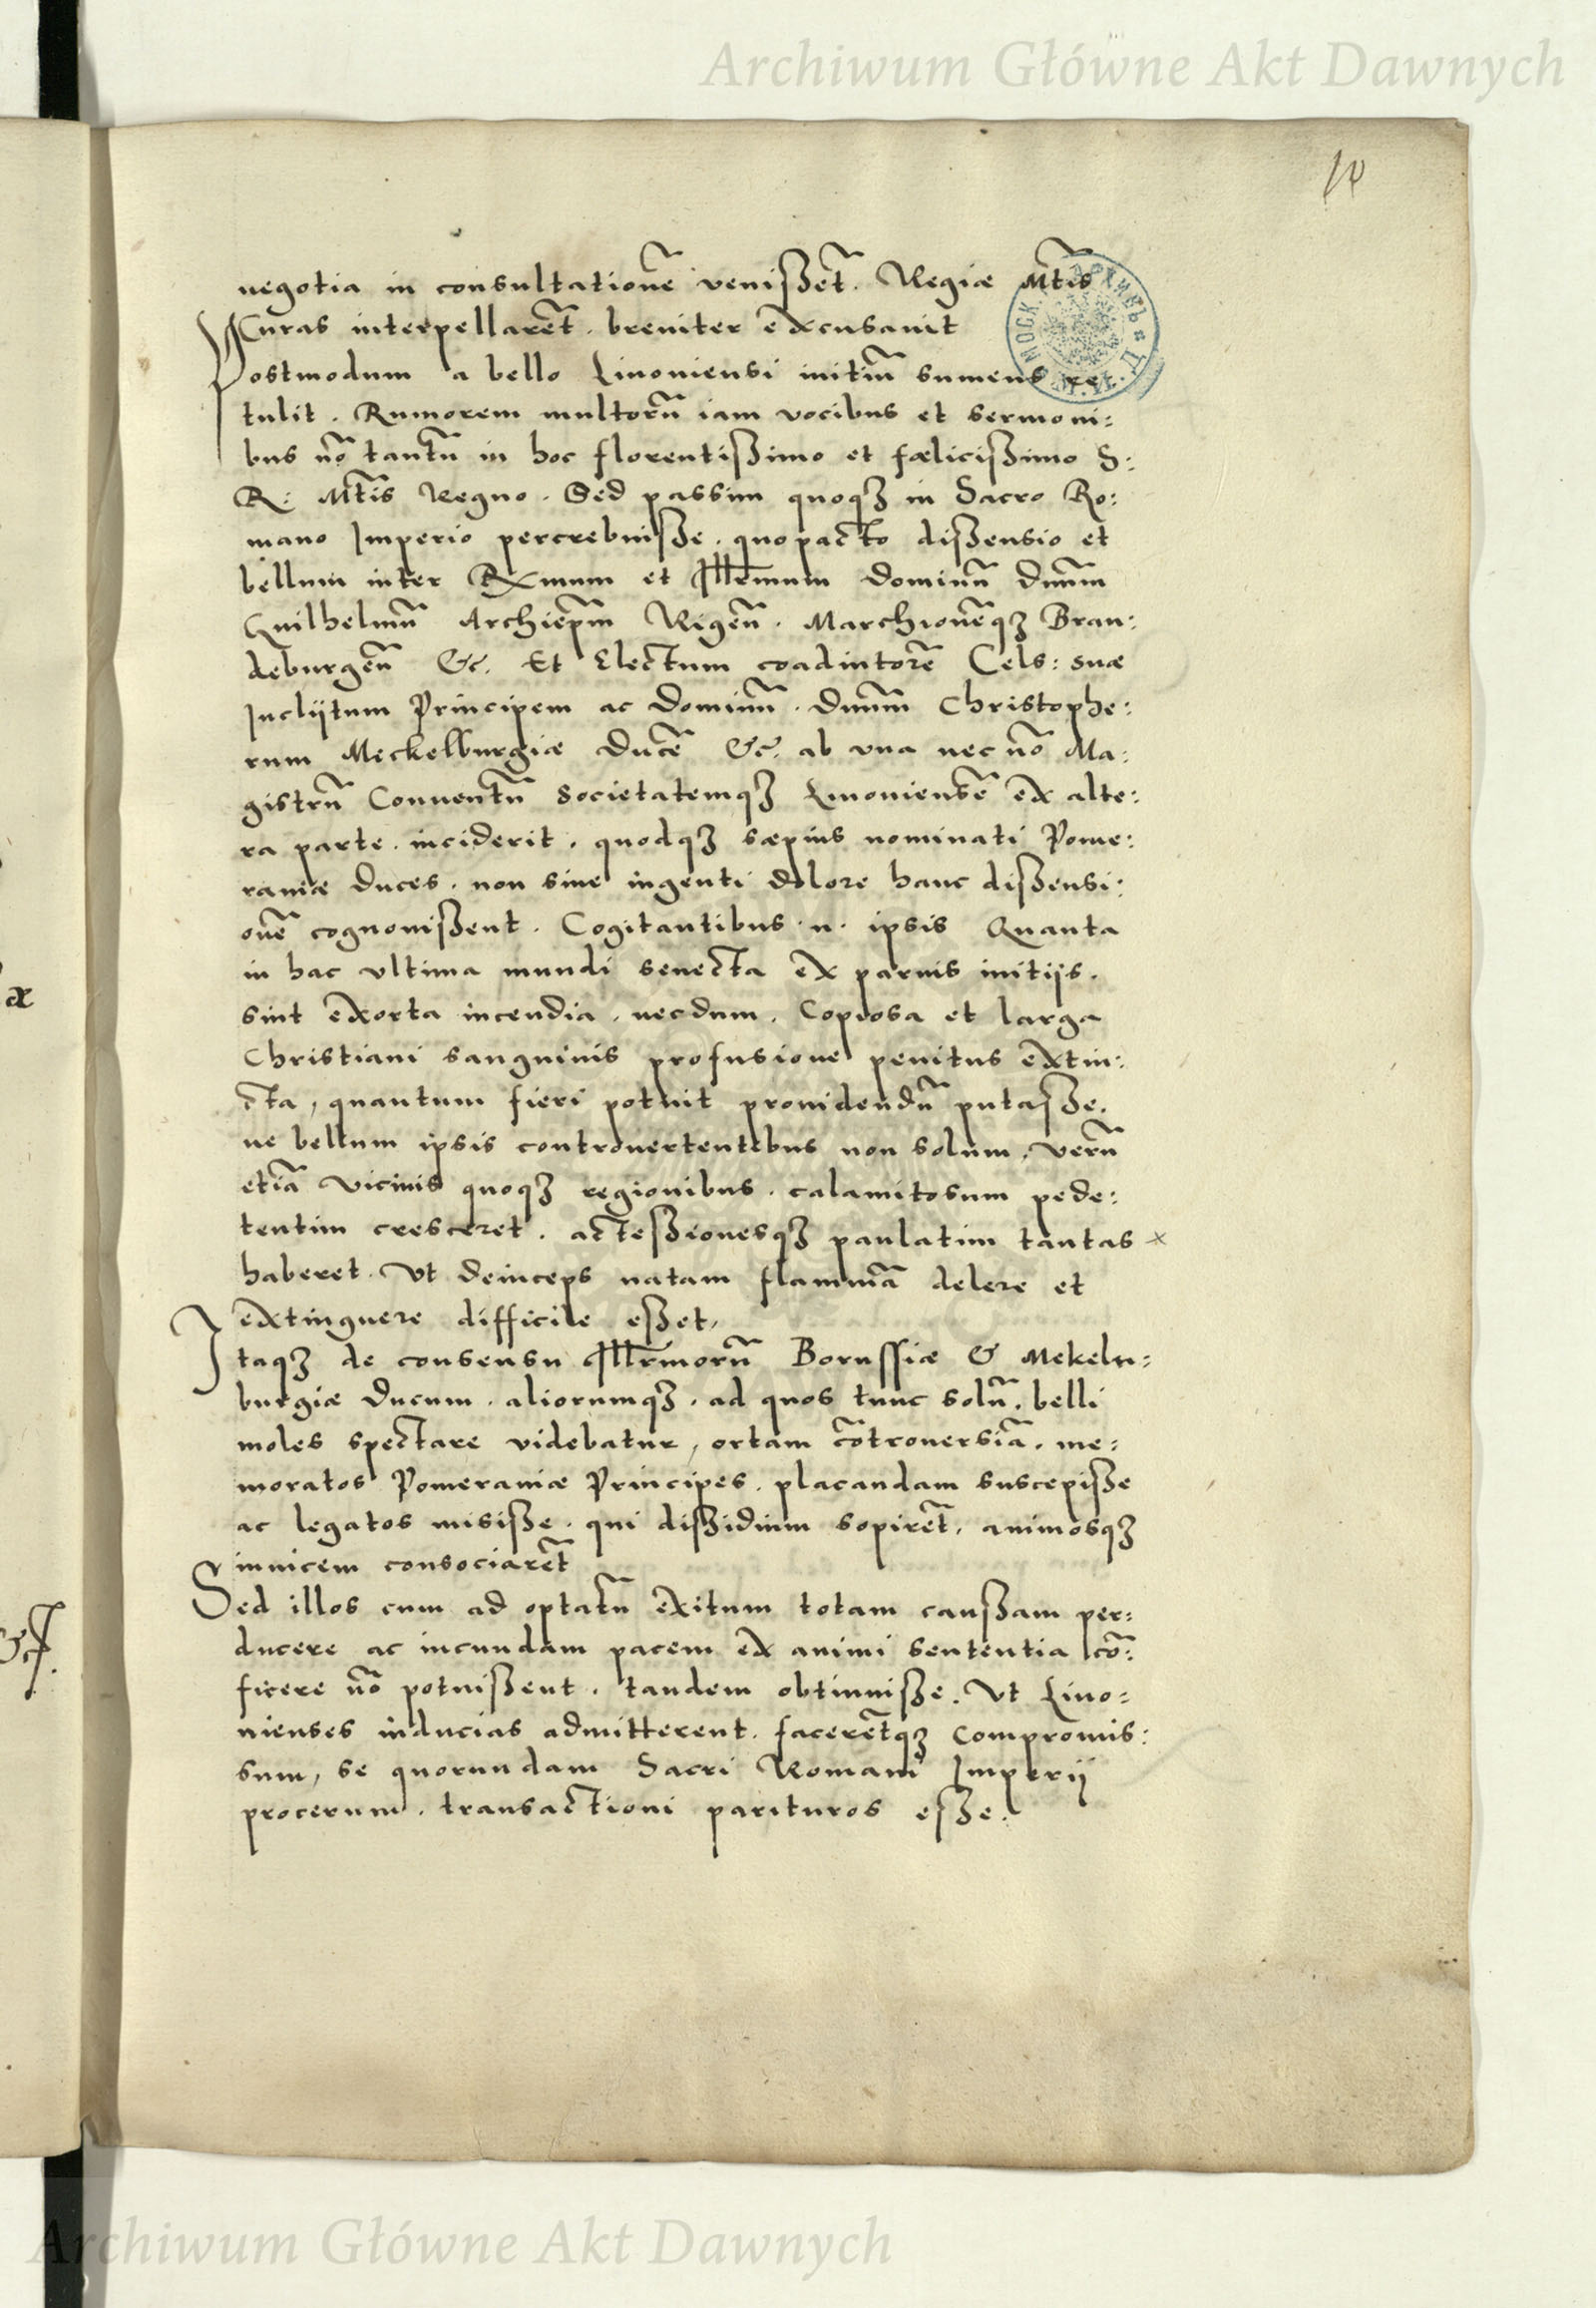 Archiwum Główne Akt Dawnych
10
negotia in consultationē venißēt. Regiæ Mtis
Curas interpellarēt. breviter excusavit
Postmodum a bello Livoniensi initiū sumens re
tulit. Rumorem multorū iam vocibus et sermoni:
bus nō tantū in hoc florentißimo et fœlicißimo S:
R: Mtis Regno. Sed passim quoqȝ in Sacro Ro:
mano Imperio percrebuiße. quo pacto dißensio et
bellum inter Rxmum et Illr̄mum Dominū Dnūm
Guilhelmū Archiep̄m Rigēn. Marchionēqȝ Bran:
deburgēn &c. Et Electum coadiutorē Cels: suæ
Inclijtum Principem ac Dominū. Dnūm Christophe:
rum Meckelburgiæ Ducē &c. ab vna nec nō Ma:
gistrū Conventū Societatemqȝ Livoniensē ex alte:
ra parte. inciderit. quodqȝ sæpius nominati Pome:
raniæ Duces. non sine ingenti dolore hanc dißensi:
onē cognovißent. Cogitantibus .n. ipsis Quanta
in hac vltima mundi senecta ex parvis initijs.
sint exorta incendia. necdum. Copiosa et larga
Christiani sanguinis profusione penitus extin:
cta, quantum fieri potuit providendū putaße.
ne bellum ipsis controvertentibus non solum. verū
etiā vicinis quoqȝ regionibus. calamitosum pede:
tentim cresceret. acceßionesqȝ paulatim tantas
haberet. Vt deinceps natam flammā delere et
extinguere difficile eßet,
Itaqȝ de consensu Illr̄morū Borussiæ & Mekeln:
burgiæ Ducum. aliorumqȝ. ad quos tunc solū. belli
moles spectare videbatur, ortam cōtroversiā. me:
moratos Pomeraniæ Principes. placandam suscepiße
ac legatos misiße. qui dißidium sopirēt. animosqȝ
invicem consociarēt
Sed illos cum ad optatū exitum totam caußam per:
ducere ac iucundam pacem ex animi sententia cō:
ficere nō potuißent. tandem obtinuiße. Vt Livo:
nienses inducias admitterent. facerētqȝ Compromis:
sum, se quorundam Sacri Romani Imperij
procerum. transactioni parituros eße.
Archiwum Główne Akt Dawnych